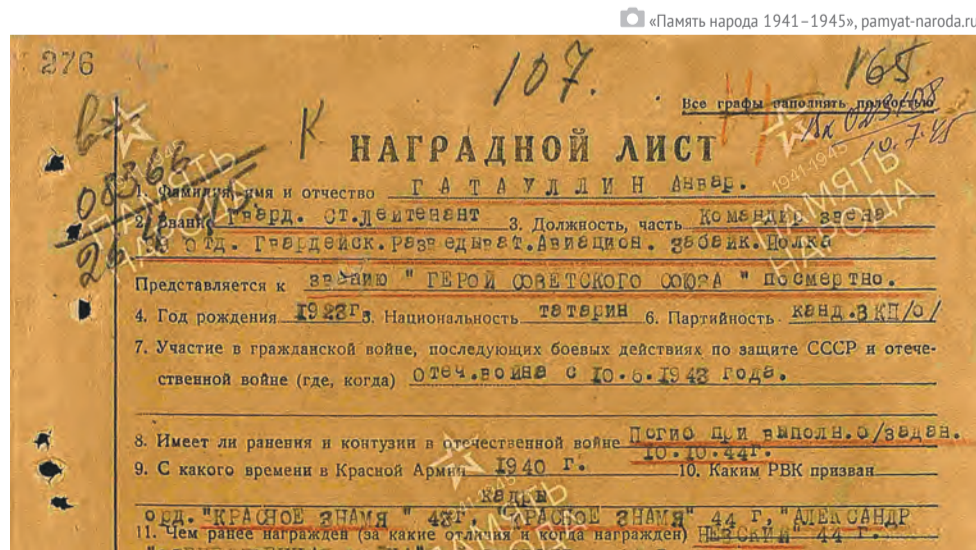 «Память народа 1941–1945», pamyat-naroda.ru
276
107.
165.
Все графы заполнять полностью
Вх 023108
10.7.45
К
НАГРАДНОЙ ЛИСТ
08366
1. Фамилия, имя и отчество ГАТАУЛЛИН Анвар.
2. Звание Гвард. Ст.лейтенант 3. Должность, часть Командир звена
отд. Гвардейск.разведыват.Авиацион. забайк.Полка
Представляется к званию " ГЕРОЙ СОВЕТСКОГО СОЮЗА " посмертно.
4. Год рождения 1923г 5. Национальность татарин 6. Партийность канд.ВКП/б/
7. Участие в гражданской войне, последующих боевых действиях по защите СССР и отече-
ственной войне (где, когда) Отеч.война с 10.6.1943 года.
8. Имеет ли ранения и контузии в отечественной войне Погиб при выполн.б/задан.
10.10.44г.
9. С какого времени в Красной Армии 1940 г. 10. Каким РВК призван
кадры
орд. "КРАСНОЕ ЗНАМЯ " 43г, "КРАСНОЕ ЗНАМЯ" 44 г, "АЛЕКСАНДР
11. Чем ранее награжден (за какие отличия и когда награжден) НЕВСКИЙ" 44 г.
ПАМЯТЬ НАРОДА
1941-1945